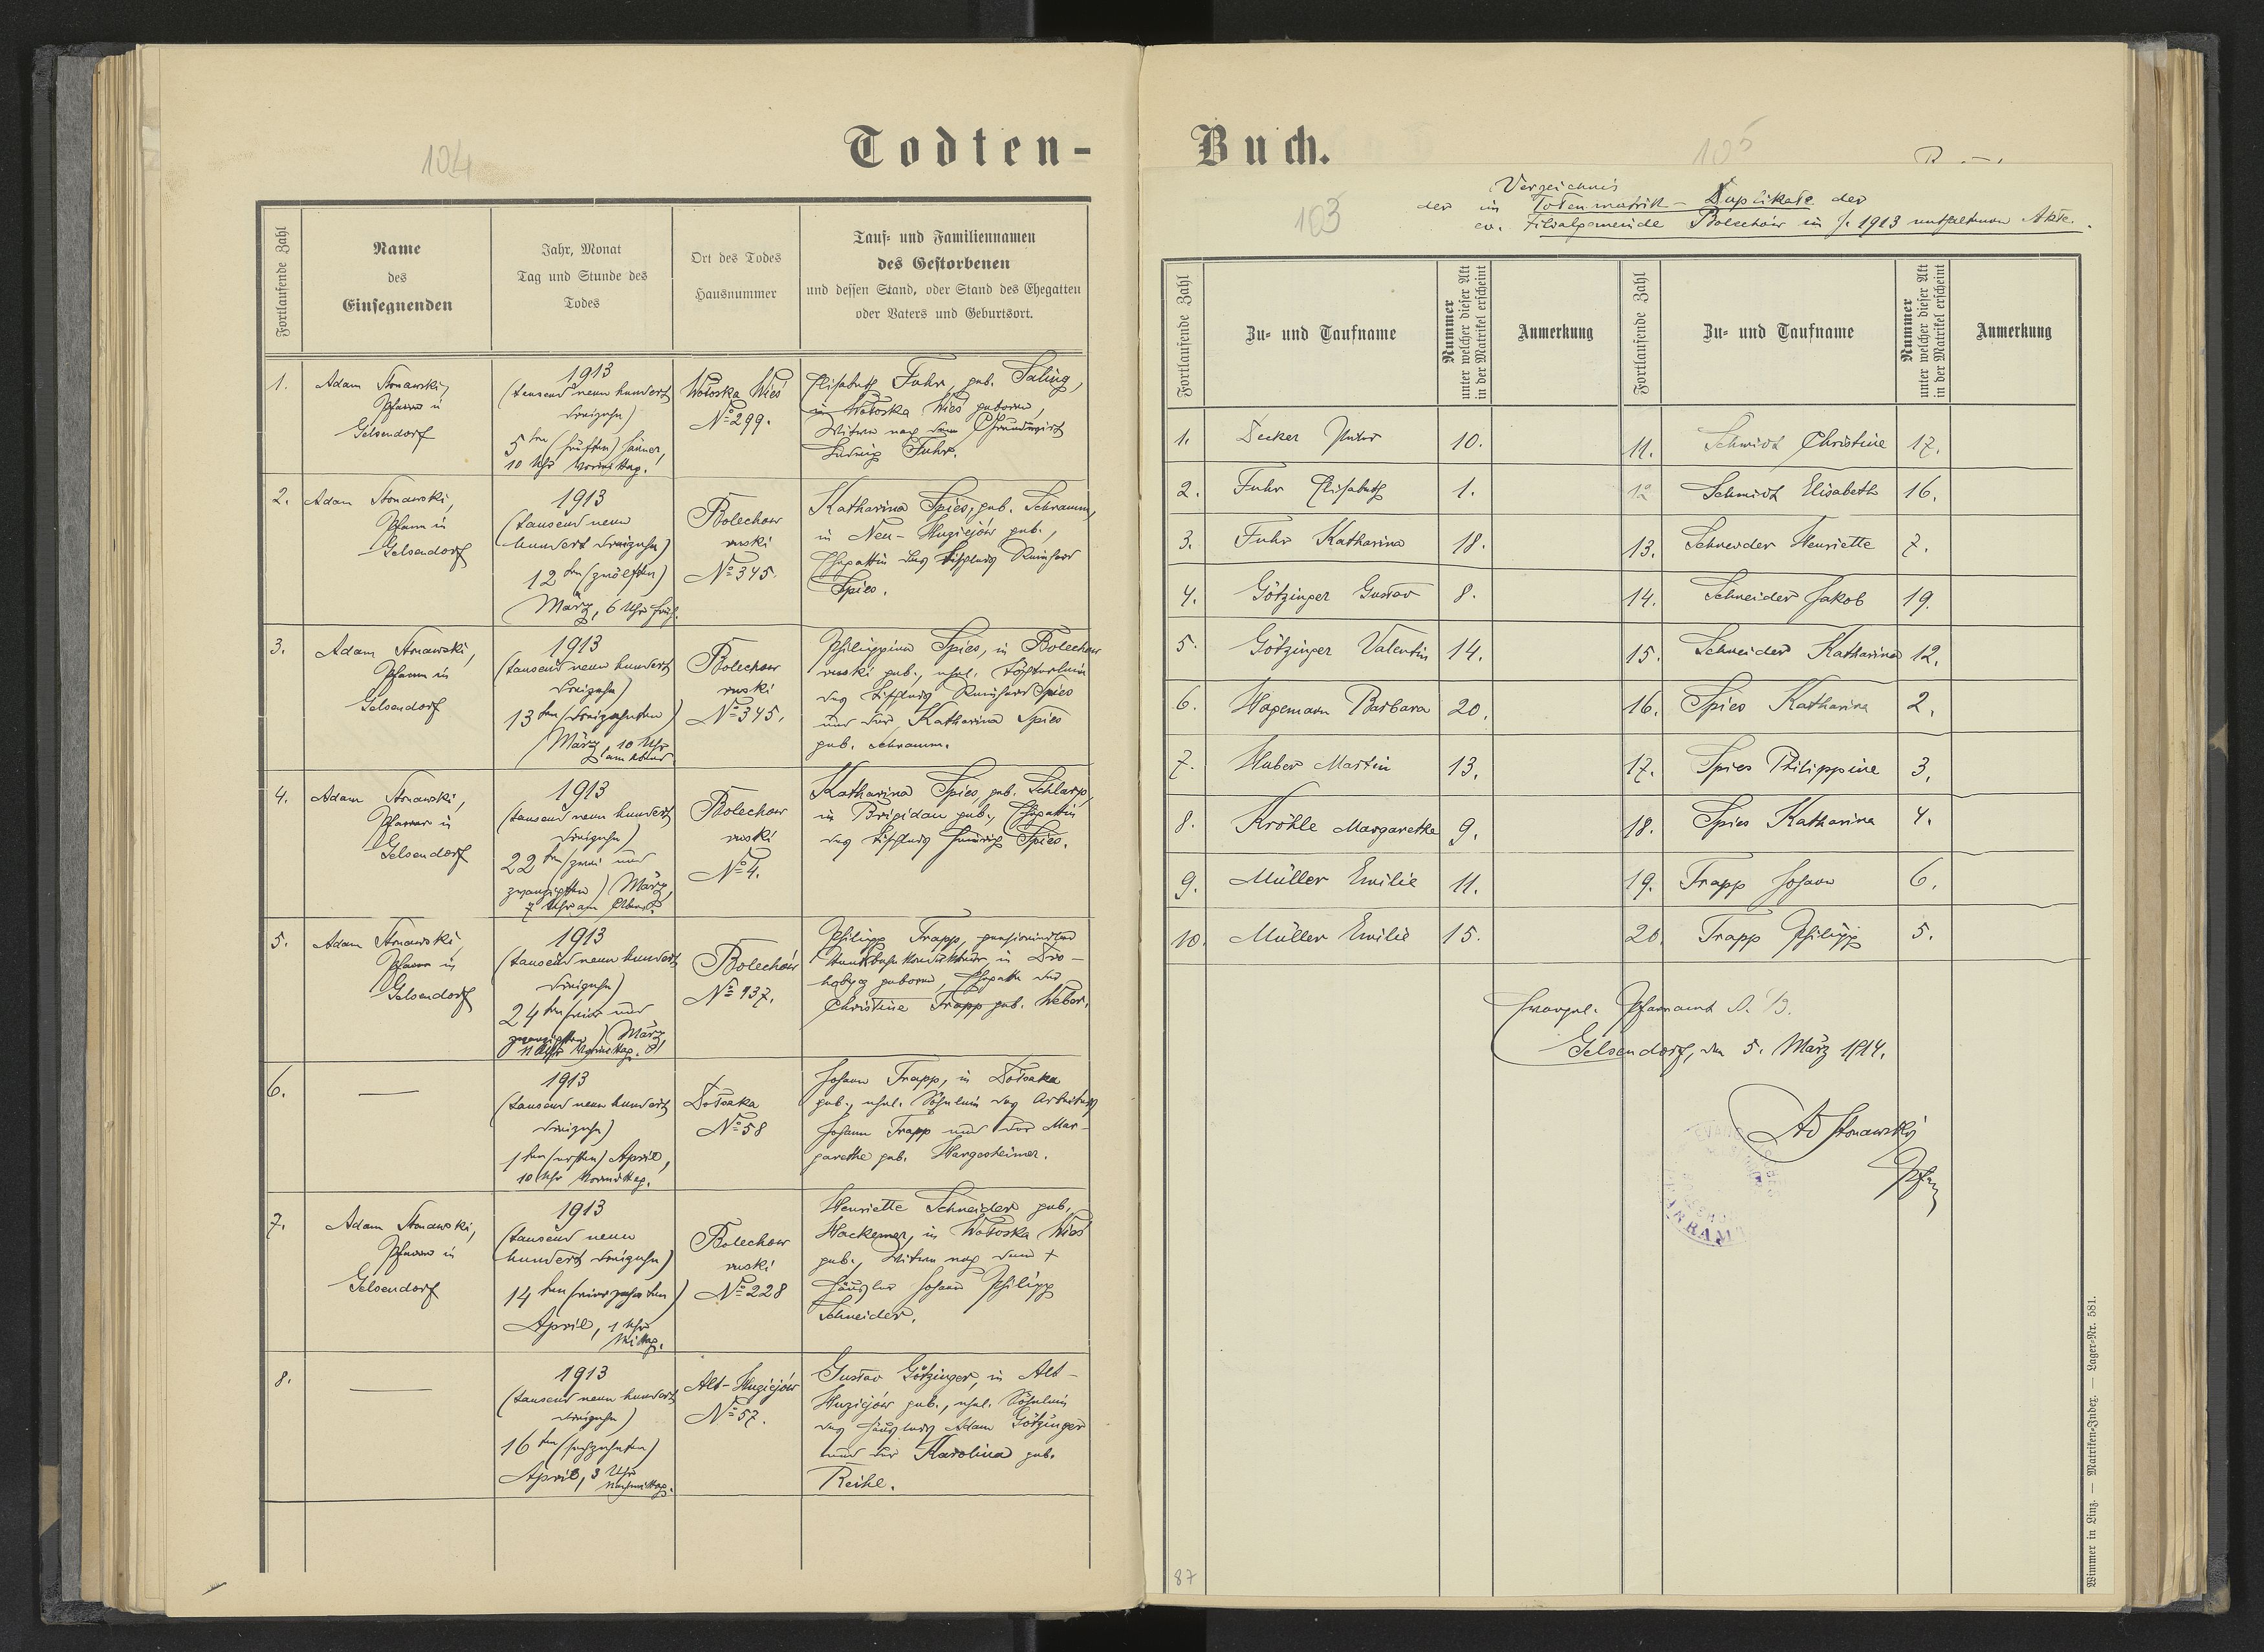 Todten-
104
Fortlaufende Zahl
Name
des
Einsegnenden
Jahr, Monat
Tag und Stunde des
Todes
Ort des Todes
Hausnummer
Tauf- und Familiennamen
des Gestorbenen
und dessen Stand, oder Stand des Ehegatten
oder Vaters und Geburtsort.
1.
Adam Stonawski,
Pfarrer in
Gelsendorf
1913
(tausend neun hundert
dreizehn)
5ten (fünften) Jänner,
10 Uhr Vormittag.
Wołoska Wieś
No 299.
Elisabeth Fuhr, geb. Saling,
in Wołoska Wieś geboren,
Witwe nach dem Grundwirt
Ludwig Fuhr.
2.
Adam Stonawski,
Pfarrer in
Gelsendorf
1913
(tausend neun
hundert dreizehn)
12ten (zwölften)
März, 6 Uhr früh.
Bolechow
ruski
No 345.
Katharina Spies, geb. Schramm,
in Neu-Huziejów geb.,
Ehegattin des Tischlers Reinhard
Spies.
3.
Adam Stonawski,
Pfarrer in
Gelsendorf
1913
(tausend neun hundert
dreizehn)
13ten (dreizehnten)
März, 10 Uhr
am Abend
Bolechow
ruski
No 345.
Philippine Spies, in Bolechow
ruski geb., ehel. Töchterlein
des Tischlers Reinhard Spies
und der Katharina Spies
geb. Schramm.
4.
Adam Stonawski,
Pfarrer in
Gelsendorf
1913
(tausend neun hundert
dreizehn)
22ten (zwei und
zwanzigsten) März,
7 Uhr am Abend.
Bolechow
ruski
No 4.
Katharina Spies, geb. Schlarp,
in Brigidau geb., Ehegattin
des Tischlers Heinrich Spies.
5.
Adam Stonawski,
Pfarrer in
Gelsendorf
1913
(tausend neun hundert
dreizehn)
24ten (vier und
zwanzigsten) März,
11 Uhr Vormittag.
Bolechów
No 137.
Philipp Trapp, pensionierter
Staatsbahnkondukteur, in Dro-
hobycz geboren, Ehegatte der
Christine Trapp geb. Weber.
6.
—
1913
(tausend neun hundert
dreizehn)
1ten (ersten) April,
10 Uhr Vormittag.
Dołzaka
No 58
Johann Trapp, in Dołzaka
geb., ehel. Söhnlein des Arbeiters
Johann Trapp und der Mar-
garethe geb. Hargesheimer.
7.
Adam Stonawski,
Pfarrer in
Gelsendorf
1913
(tausend neun
hundert dreizehn)
14ten (vierzehnten)
April, 1 Uhr
Mittag.
Bolechow
ruski
No 228
Henriette Schneider geb.
Hackemer, in Wołoska Wieś
geb., Witwe nach dem +
Häusler Johann Philipp
Schneider.
8.
—
1913
(tausend neun hundert
dreizehn)
16ten (sechzehnten)
April, 3 Uhr
Nachmittag.
Alt-Huziejów
No 57.
Gustav Götzinger, in Alt-
Huziejów geb., ehel. Söhnlein
des Häuslers Adam Götzinger
und der Karolina geb.
Reihl.
Buch.
105
103
Verzeichnis
der im Totenmatrik-Duplikate der
ev. Filialgemeinde Bolechów im J. 1913 enthaltenen Akte.
Fortlaufende Zahl
Zu- und Taufname
Nummer
unter welcher dieser Akt
in der Matrikel erscheint
Anmerkung
Fortlaufende Zahl
Zu- und Taufname
Nummer
unter welcher dieser Akt
in der Matrikel erscheint
Anmerkung
1. Decker Peter 10.
2. Fuhr Elisabeth 1.
3. Fuhr Katharina 18.
4. Götzinger Gustav 8.
5. Götzinger Valentin 14.
6. Hagemann Barbara 20.
7. Huber Martin 13.
8. Kröhle Margarethe 9.
9. Müller Emilie 11.
10. Müller Emilie 15.
11. Schmidt Christine 17.
12. Schmidt Elisabeth 16.
13. Schneider Henriette 7.
14. Schneider Jakob 19.
15. Schneider Katharina 12.
16. Spies Katharina 2.
17. Spies Philippine 3.
18. Spies Katharina 4.
19. Trapp Johann 6.
20. Trapp Philipp 5.
Evangel. Pfarramt A. B.
Gelsendorf, den 5. März 1914.
Ad Stonawski
Pfr
87
Wimmer in Linz. — Matriken-Index. — Lager-Nr. 581.